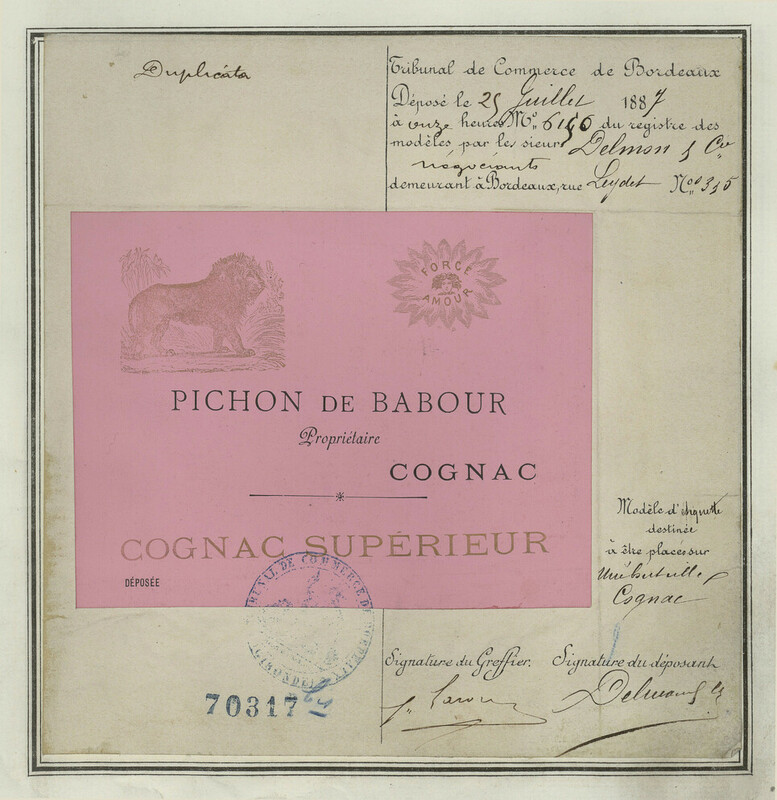 Duplicata
Tribunal de Commerce de Bordeaux
Déposé le 25 Juillet 1887
à onze heures No. 6156 du registre des
modèles par les sieurs Delmon & Cie
négociants
demeurant à Bordeaux, rue Leydet Nos 3 & 5
FORCE
AMOUR
PICHON DE BABOUR
Propriétaire
COGNAC
COGNAC SUPÉRIEUR
DÉPOSÉE
Modèle d'étiquette
destinée
à être placée sur
Une bouteille
Cognac
TRIBUNAL DE COMMERCE DE BORDEAUX
GIRONDE
Signature du Greffier. Signature du déposant
70317